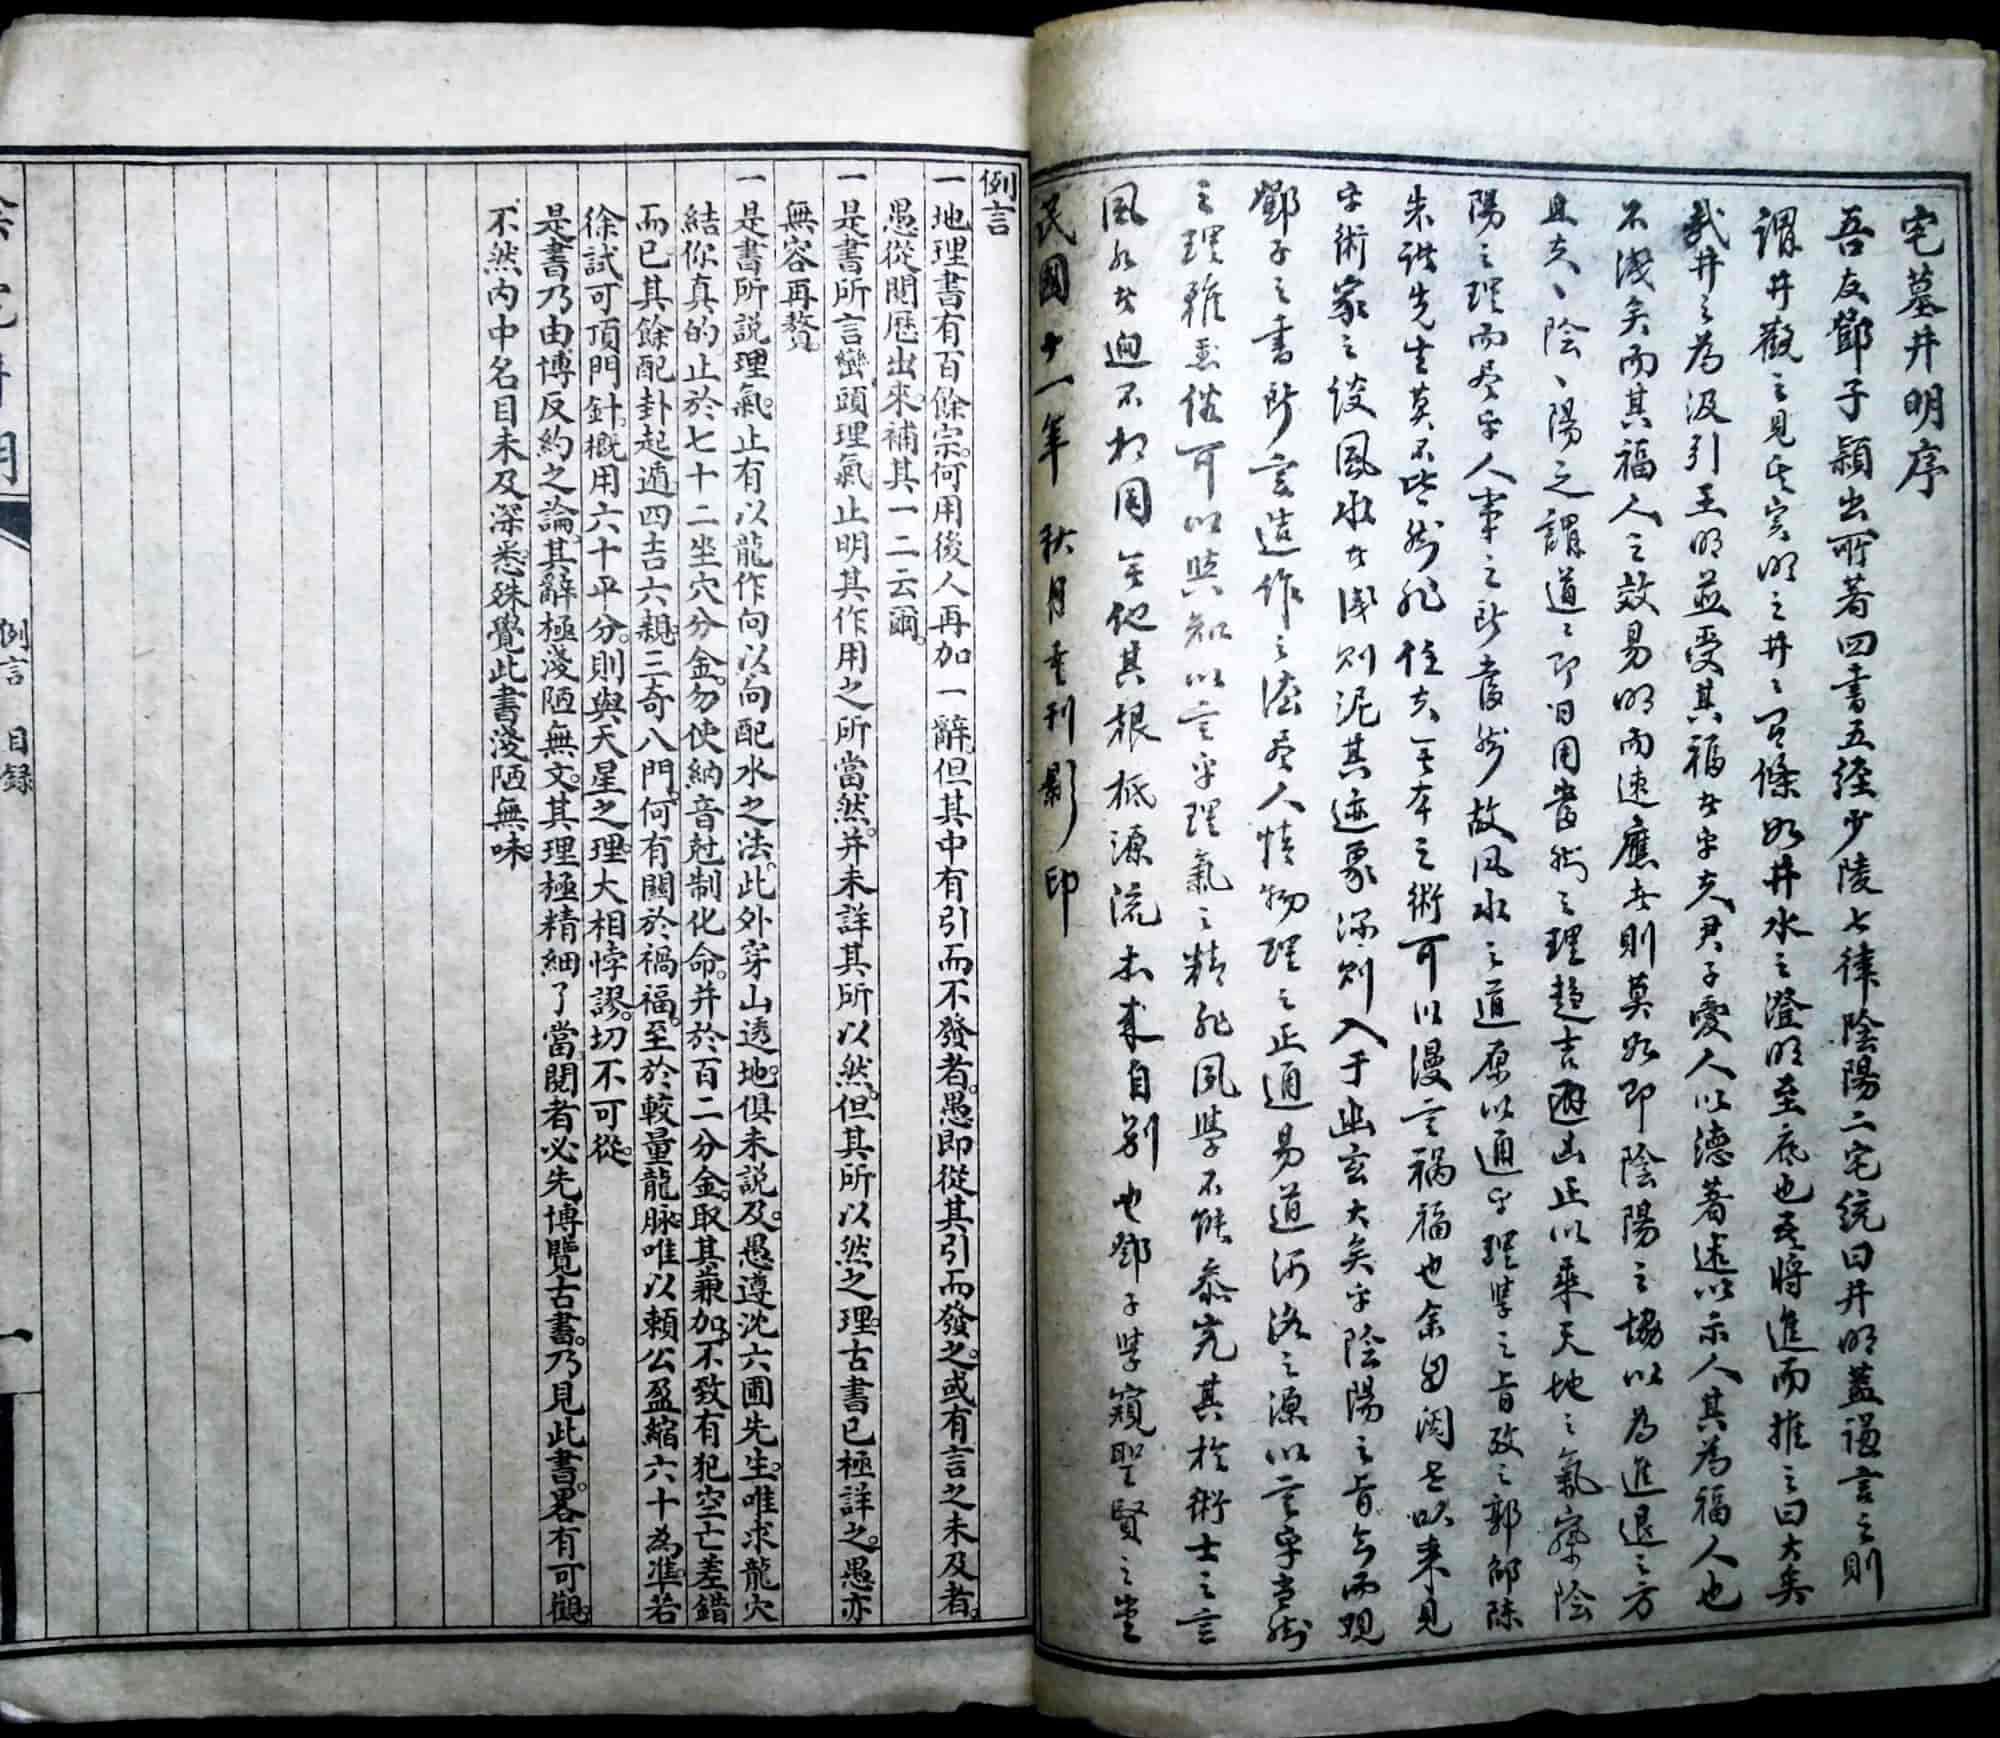 宅墓井明序
吾友鄧子穎出所著四書五經少陵七律陰陽二宅統曰井明蓋謙言之則
謂井觀之見其實明之井之可條如井水之澄明至底也吾將進而推之曰大矣
哉井之為汲引王明並受其福者乎夫君子愛人以德著述以示人其為福人也
不淺矣而其福人之效易明而速應者則莫如即陰陽之協以為進退之方
且夫、陰、陽之謂道之即日用當然之理趨吉避凶正以乘天地之氣察陰
陽之理而尽乎人事之所當然故風水之道原以通乎理學之旨攷之郭邵陳
朱諸先生莫不皆然非徒夫無本之術可以漫言禍福也余
字術家之談風水者淺則泥其迹象深則入于幽玄大矣乎陰陽之旨今而觀
鄧子之書所言造作之法尽人情物理之正通易道河洛之源以言乎當然
之理雅俗可以與知以言乎理氣之精非夙學不能參究其於術士之言
風水者迥不相同無他其根柢源流本來自別也鄧子學窺聖賢之堂
民國十一年 秋月重刊影印
例言
一地理書有百餘宗。何用後人再加一辭。但其中有引而不發者。愚即從其引而發之。或有言之未及者。
愚從閱歷出來。補其一二云爾。
一是書所言巒頭理氣。止明其作用之所當然。并未詳其所以然。但其所以然之理。古書已極詳之。愚亦
無容再贅。
一是書所說理氣。止有以龍作向以向配水之法。此外穿山透地。俱未說及。愚遵沈六圃先生。唯求龍穴
結作真的。止於七十二坐穴分金。勿使納音尅制化命。并於百二分金。取其兼加。不致有犯空亡差錯
而已。其餘配卦起遁。四吉六親。三奇八門。何有關於禍福。至於較量龍脉。唯以賴公盈縮六十為準。若
徐試可頂門針。概用六十平分。則與天星之理。大相悖謬。切不可從。
是書乃由博反約之論。其辭極淺陋無文。其理極精細了當。閱者必先博覽古書。乃見此書。畧有可觀。
不然。內中名目。未及深悉。殊覺此書淺陋無味。
例言 目録
一